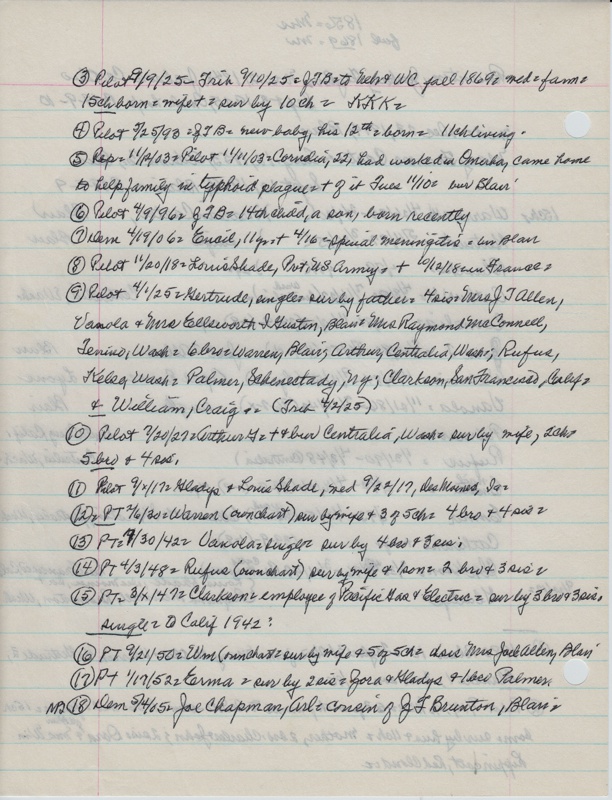 ③ Pilot 9/9/25 - Trib 9/10/25 = JTB = to Nebr & WC fall 1869 = med = farm =
15 ch born = wife + = sur by 10 ch = KKK =
④ Pilot 3/25/93 = JTB = new baby, his 12th = born = 11 ch living.
⑤ Rep = 11/12/03 = Pilot 11/11/03 = Cornelia, 22, had worked in Omaha, came home
to help family in typhoid plague = + of it Tues 11/10 = bur Blair
⑥ Pilot 4/9/96 = JTB = 14th child, a son, born recently
⑦ Dem 4/19/06 = Encil, 11 yrs + 4/16 = spinal meningitis = bur Blair
⑧ Pilot 11/20/18 = Louis Shade, Pvt, US Army = + 10/12/18 = in France =
⑨ Pilot 4/1/25 = Gertrude, single = sur by father = 4 sis = Mrs J T Allen,
Vanola & Mrs Ellsworth I Gustin, Blair = Mrs Raymond McConnell,
Tenino, Wash = 6 bro = Warren, Blair, Arthur, Centralia, Wash, Rufus,
Kelso, Wash = Palmer, Schenectady, Ny, Clarkson, San Francisco, Calif =
& William, Craig = (Trib 4/2/25)
⑩ Pilot 7/20/27 = Arthur G = + & bur Centralia, Wash = sur by wife, 2 ch =
5 bro & 4 sis,
⑪ Pilot = Gladys & Louis Shade, med 9/22/17, Des Moines, Ia =
⑫ = PT 2/6/30 = Warren (own chart) sur by wife & 3 of 5 ch = 4 bro & 4 sis =
⑬ PT = 7/30/42 = Vanola = single = sur by 4 bro & 3 sis.
⑭ PT 4/3/48 = Rufus (own chart) sur by wife & 1 son = 2 bro & 3 sis =
⑮ PT = 3/x/47 = Clarkson = employee of Pacific Gas & Electric = sur by 3 bro & 3 sis,
single = to Calif 1942 =
⑯ PT 9/21/50 = Wm (own chart = sur by wife & 5 of 5 ch = sis Mrs Jack Allen, Blair
⑰ PT 1/17/52 = Erma = sur by 2 sis = Zora & Gladys & 1 bro Palmer
NB ⑱ Dem 5/4/05 = Joe Chapman, Arl = cousin of J F Brunton, Blair =